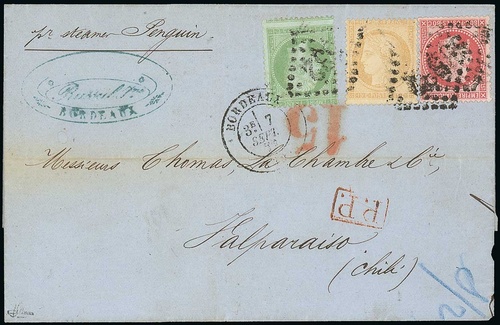 pr steamer Penguin
BORDEAUX
BORDEAUX
3E
7
SEPT.
15
Messieurs Thomas, La Chambre & Cie
P.P.
Valparaiso
(Chili)
2/P